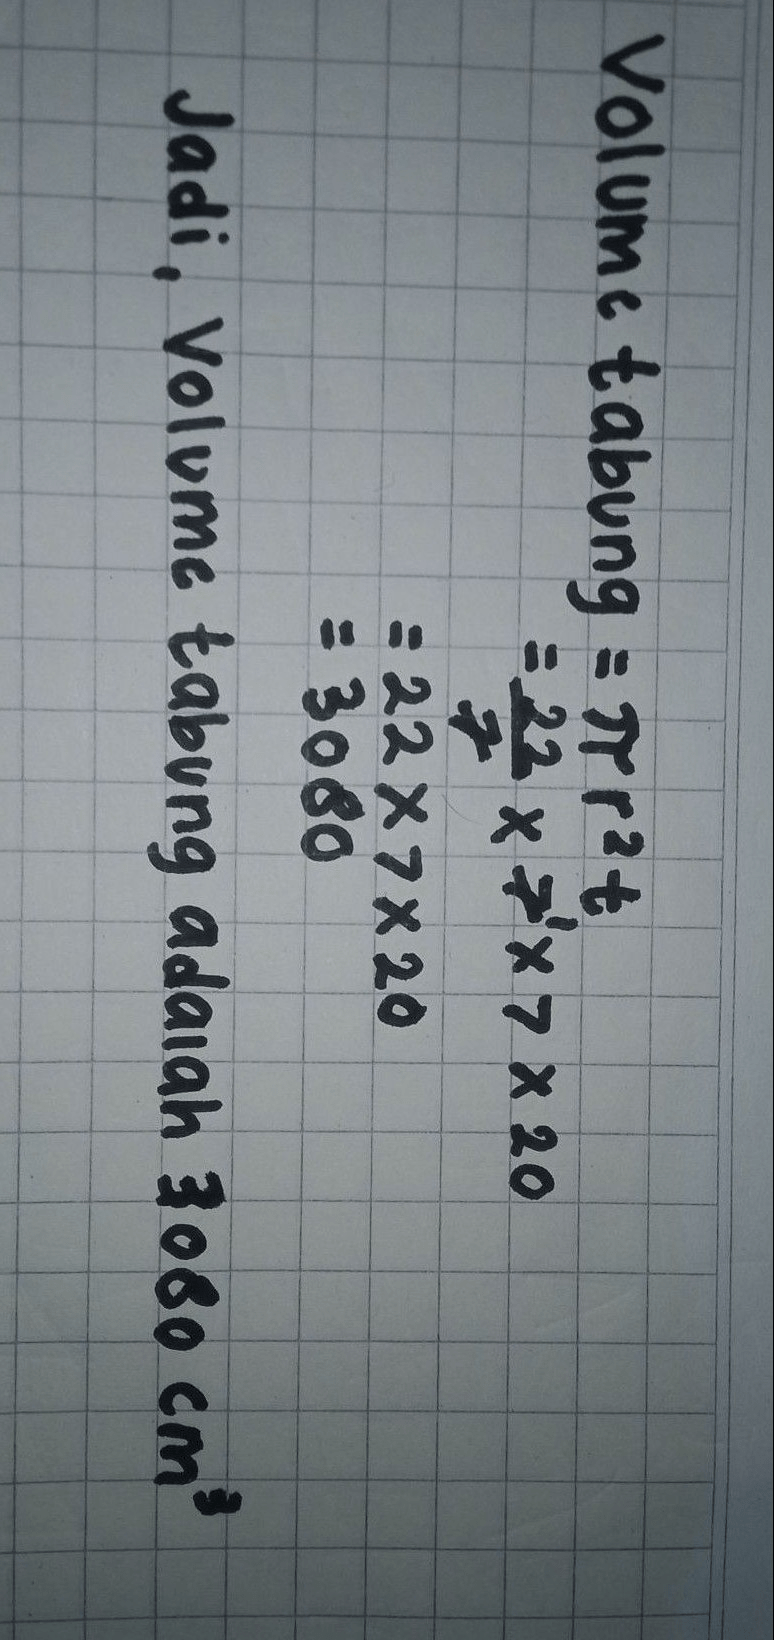 Volume tabung = π r²t
= 22/7 x 7¹ x 7 x 20
= 22 x 7 x 20
= 3080
Jadi, Volume tabung adalah 3080 cm³